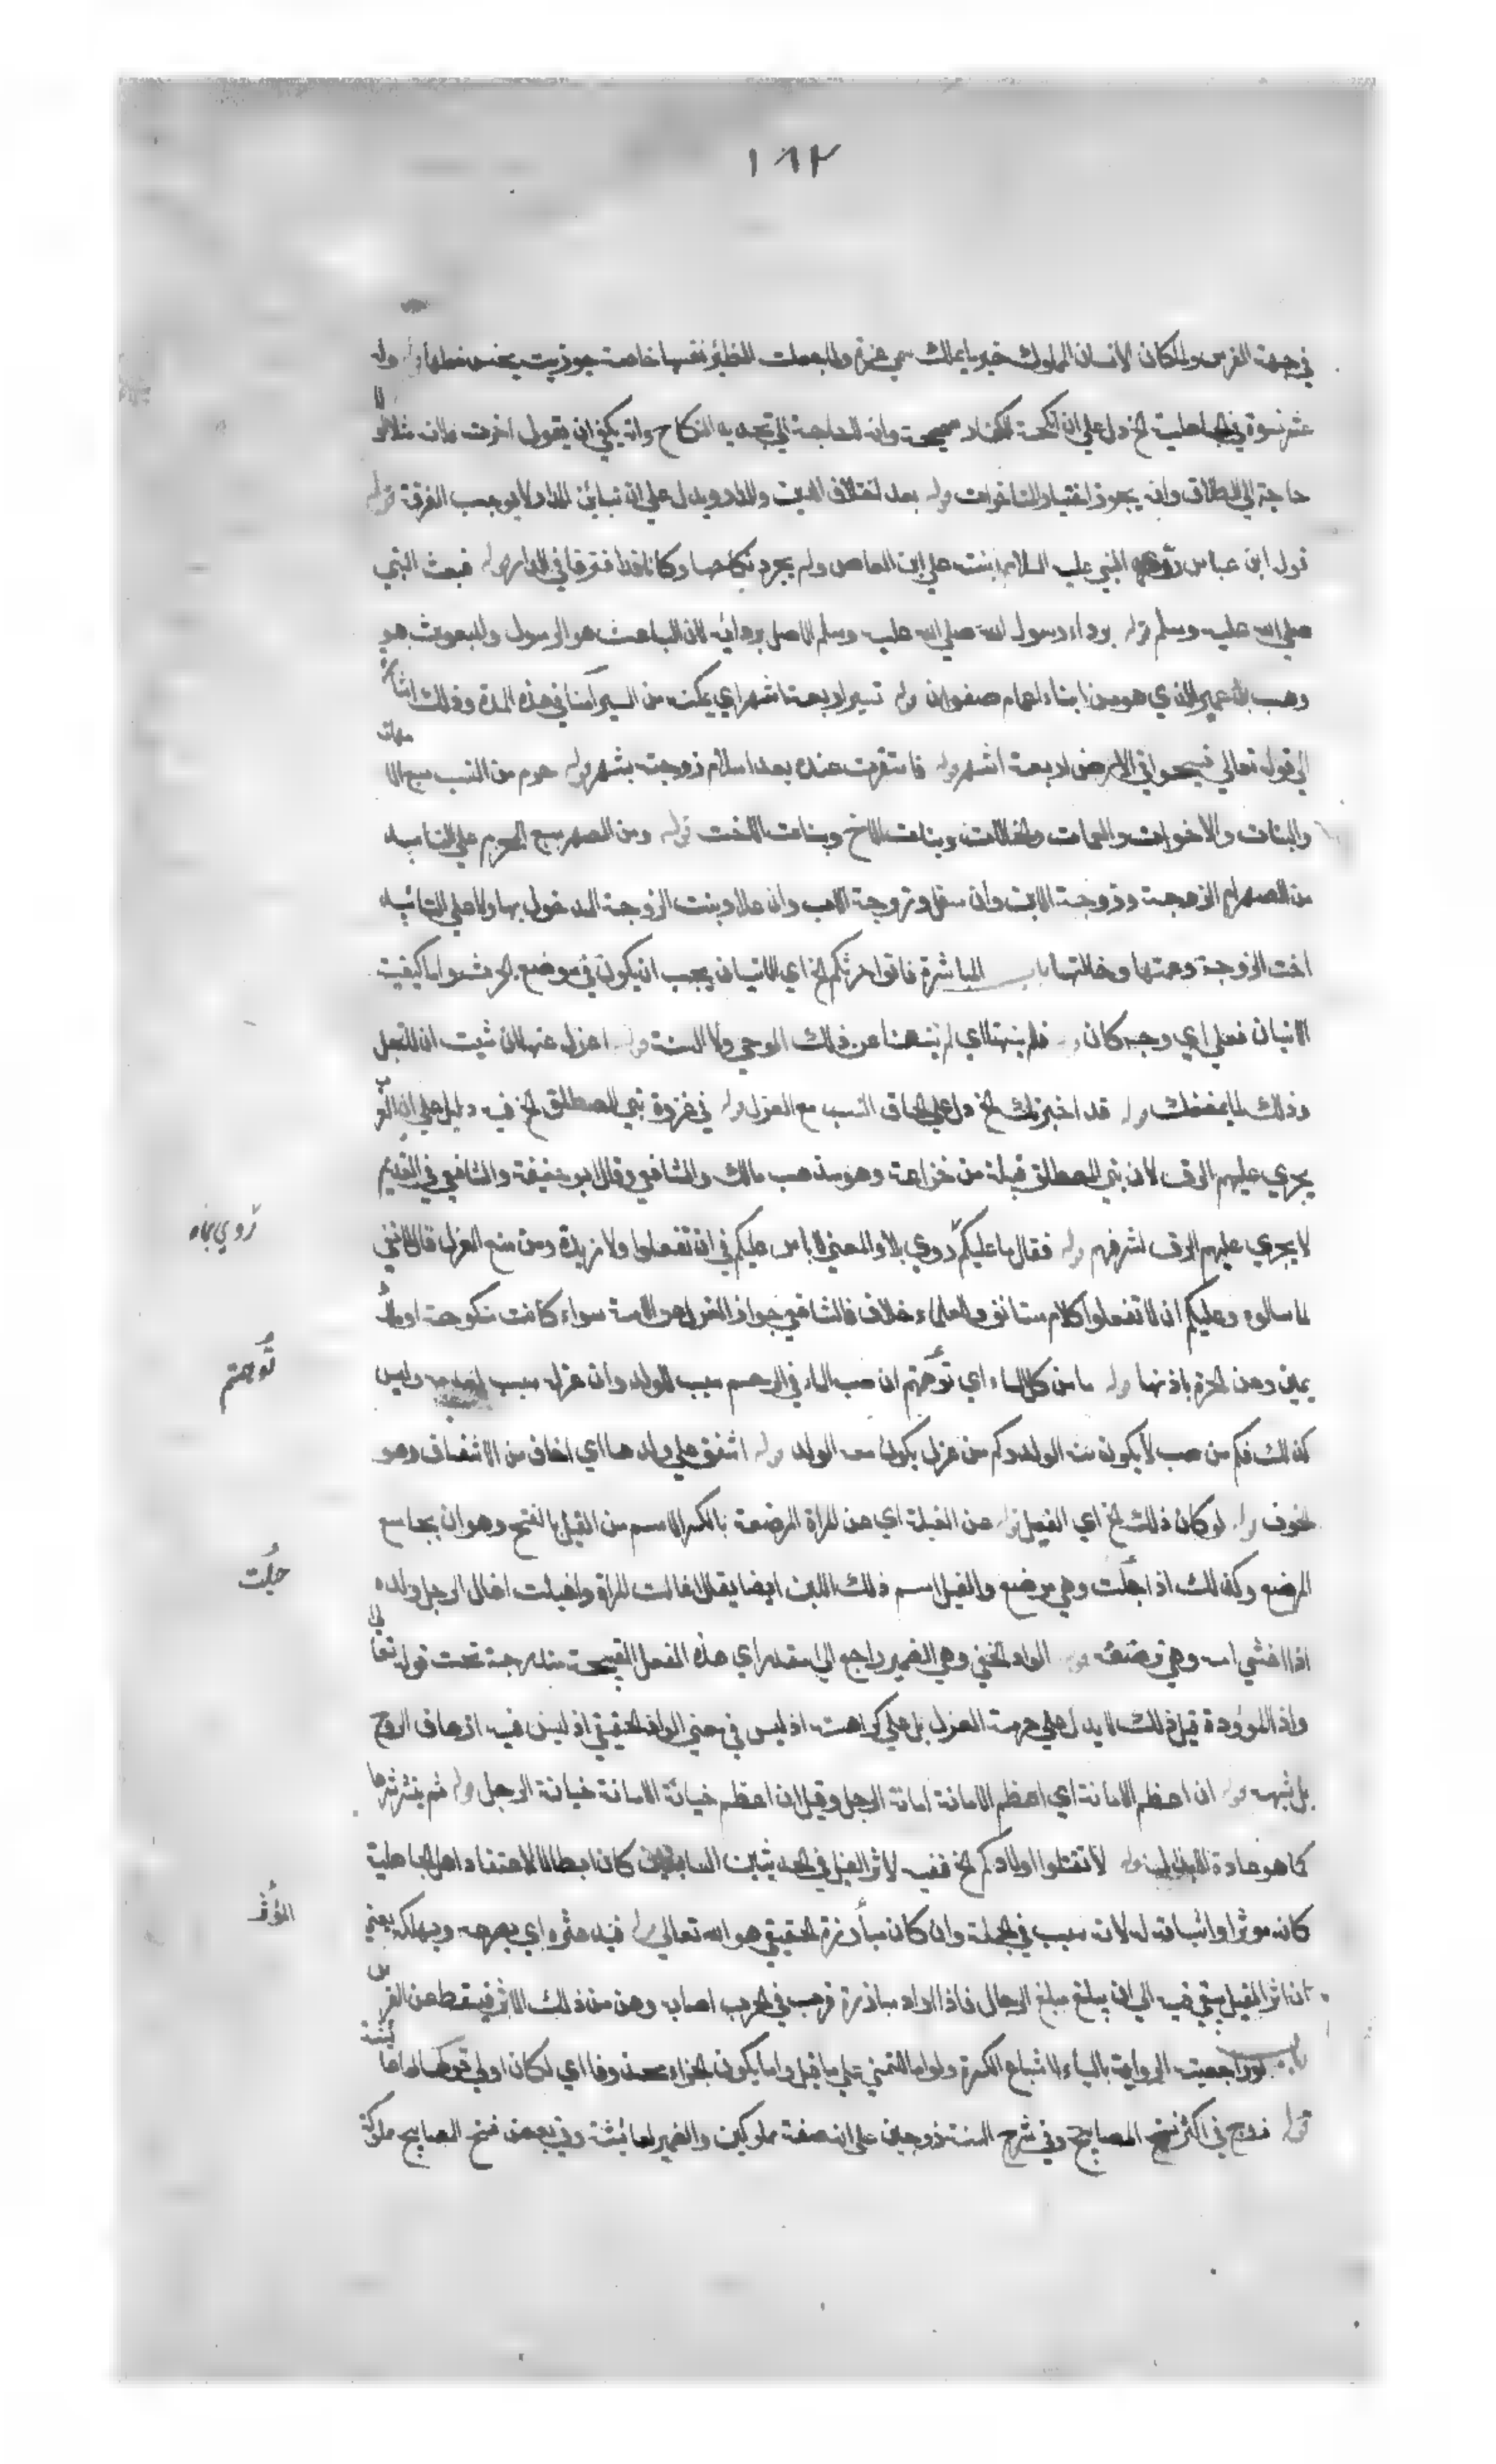 ١٨٢
في جهة الفرس ولما كان الانسان المملوك خير ما يملك سمي غرة ولما جعلت الظئر نفسها خادمة جوزيت بجنس فعلها قوله وله
عشر نسوة في الجاهلية الخ دل علي ان انكحة الكفار صحيحة وانه لا حاجة الي تجديد النكاح وانه يكفي ان يقول اخترت فلانة مثلا ولا
حاجة الي الطلاق وانه يجوز اختيار المتاخرات قوله بعد اختلاف الدين والدار ويدل علي ان تباين الدار لا يوجب الفرقة قوله
قول ابن عباس رد النبي عليه السلام بنته علي ابن العاص ولم يجرد نكاحها وكانا قد افترقا في الدار قوله فبعث النبي
صلي الله عليه وسلم قوله برداء رسول الله صلي الله عليه وسلم الاصل بردائه لان الباعث هو الرسول والمبعوث هو
وهب بن عمير الذي هو من ابناء اعمام صفوان قوله تسير اربعة اشهر اي يمكنه من السير آمنا في هذه المدة وذلك اشارة
الي قوله تعالي فسيحوا في الارض اربعة اشهر قوله فاستقرت عنده بعد اسلام زوجته بشهر قوله حرم من النسب سبع الامهات
والبنات والاخوات والعمات والخالات وبنات الاخ وبنات الاخت قوله ومن الصهر سبع المحرم علي التابيد
من الصهر ام الزوجة وزوجة الابن وان سفل وزوجة الاب وان علا وبنت الزوجة المدخول بها ولا علي التابيد
اخت الزوجة وعمتها وخالتها باب المباشرة فاتوا حرثكم الخ اي الاتيان يجب ان يكون في موضع الحرث واما كيفية
الاتيان فعلي اي وجه كان قوله فلم ينهنا اي لم ينهنا عن ذلك الوحي ولا السنة قوله اعزل عنها ان شيت ان لا تحبل
وذلك لا ينفعك قوله قد اخبرتك الخ دل علي الحاق النسب مع العزل قوله في غزوة بني المصطلق الخ فيه دليل علي ان العرب
يجري عليهم الرق لان بني المصطلق قبيلة من خزاعة وهو مذهب مالك والشافعي وقال ابو حنيفة والشافعي في القديم
لا يجري عليهم الرق لشرفهم قوله فقال ما عليكم روي بلا والمعني لا باس عليكم في ان تفعلوا ولا مزيدة ومن منع العزل قال لا نفي
روي بماه
لما سالوه وعليكم ان لا تفعلوا كلام مستانف وللعلماء خلاف فالشافعي جواز العزل عن الامة سواء كانت منكوحة او ملك
يمين وعن الحرة باذنها قوله ما من كل الماء اي توهمتم ان صب الماء في الرحم سبب للولد وان عزله سبب لعدمه وليس
توهمتم
كذلك فكم من صب لا يكون منه الولد وكم من عزل يكون معه الولد قوله اشفق علي ولدها اي اخاف من الاشفاق وهو
الخوف قوله لو كان ذلك الخ اي الغيل قوله عن الغيلة اي عن المراة المرضعة بالكسر الاسم من الغيل بالفتح وهو ان يجامع
المرضع وكذلك اذا حبلت وهي مرضع والغيل اسم ذلك اللبن ايضا يقال اغالت المراة واغيلت اغال الرجل ولده
حبلت
اذا اغشي امه وهي ترضعه قوله الواد الخفي وهي الضمير راجع الي مقدر اي هذه الفعلة القبيحة مندرجة تحت قوله تعالي
واذا الموودة قيل ذلك لا يدل علي حرمة العزل بل علي كراهته اذ ليس في معني الواد الحقيقي اذ ليس فيه ازهاق الروح
بل شبهه قوله ان اعظم الامانة اي اعظم الامانة امانة الرجل وقيل ان اعظم خيانة الامانة خيانة الرجل قوله ثم ينشر سرها
كما هو عادة قوله لا تقتلوا اولادكم الخ ففيه لاثر الغيل في الحديثين السابقين كان ابطالا لاعتقاد اهل الجاهلية
كانه موثرا واثباته له لانه سبب في الجملة وان كان المؤثر الحقيقي هو الله تعالي قوله فيدعثره اي يصرعه ويهلكه يعني
المؤثر
ان اثر الغيل يبقي فيه الي ان يبلغ مبلغ الرجال فاذا اراد مبارزة قرنه في الحرب اصابه وهن من ذلك الاثر فيسقط عن الفرس
باب لو راجعتيه الرواية بالياء لاشباع الكسرة ولو اما للتمني علي ما قيل واما يكون الجزاء محذوفا اي لكان اولي
قوله زوج في اكثر نسخ المصابيح وفي شرح السنة زوجين علي انه صفة مملوكين والضمير لعائشة وفي بعض نسخ المصابيح مملوكة